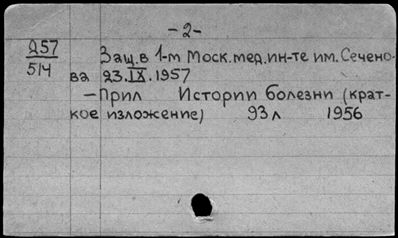 -2-
Д57
514
Защ. в 1-м Моск. мед. ин-те им. Сечено-
ва 23.IX.1957
— Прил Истории болезни (крат-
кое изложение) 93 л 1956